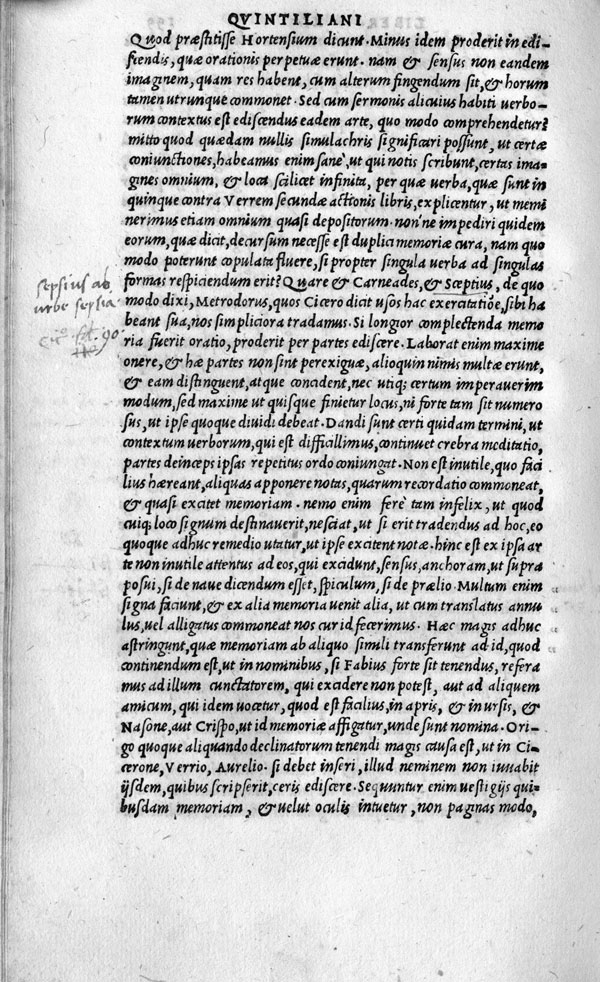 QVINTILIANI
Quod præstitisse Hortensium dicunt. Minus idem proderit in edi-
scendis, quæ orationis perpetuæ erunt. nam & sensus non eandem
imaginem, quam res habent, cum alterum fingendum sit, & horum
tamen utrunque commonet. Sed cum sermonis alicuius habiti verbo-
rum contextus est ediscendus eadem arte, quo modo comprehendetur?
mitto quod quædam nullis simulachris significari possunt, ut certæ
coniunctiones, habeamus enim sane, ut qui notis scribunt, certas ima-
gines omnium, & loca scilicet infinita, per quæ verba, quæ sunt in
quinque contra Verrem secundæ actionis libris, explicentur, ut memi
nerimus etiam omnium quasi depositorum. non'ne impediri quidem
eorum, quæ dicit, decursum necesse est duplici memoriæ cura, nam quo
modo poterunt copulata fluere, si propter singula verba ad singulas
formas respiciendum erit? Quare & Carneades, & Scæptius, de quo
sepsius ab
modo dixi, Metrodorus, quos Cicero dicit usos hac exercitatiõe, sibi ha
urbe sepsia
beant sua, nos simpliciora tradamus. Si longior complectenda memo
90
ria fuerit oratio, proderit per partes ediscere. Laborat enim maxime
onere, & hæ partes non sint perexiguæ, alioquin nimis multæ erunt,
& eam distinguent, atque concident, nec utiq; certum imperauerim
modum, sed maxime ut quisque finietur locus, ni forte tam sit numero
sus, ut ipse quoque diuidi debeat. Dandi sunt certi quidam termini, ut
contextum uerborum, qui est difficillimus, continuet crebra meditatio,
partes deinceps ipsas repetitus ordo coniungat. Non est inutile, quo faci
lius hæreant, aliquas apponere notas, quarum recordatio commoneat,
& quasi excitet memoriam. nemo enim ferè tam infelix, ut quod
cuiq; loco signum destinauerit, nesciat, ut si erit tradendus ad hoc, eo
quoque adhuc remedio utatur, ut ipse excitent notæ. hinc est ex ipsa ar
te non inutile attentus ad eos, qui excidunt, sensus, anchoram, ut supra
posui, si de naue dicendum esset, spiculum, si de prælio. Multum enim
signa faciunt, & ex alia memoria uenit alia, ut cum translatus annu
lus, uel alligatus commoneat nos cur id fecerimus. Hæc magis adhuc
astringunt, quæ memoriam ab aliquo simili transferunt ad id, quod
continendum est, ut in nominibus, si Fabius forte sit tenendus, refera
mus ad illum cunctatorem, qui excidere non potest, aut ad aliquem
amicum, qui idem uocetur, quod est facilius, in apris, & in ursis, &
Nasone, aut Crispo, ut id memoriæ affigatur, unde sunt nomina. Ori-
go quoque aliquando declinatorum tenendi magis causa est, ut in Ci-
cerone, Verrio, Aurelio. si debet inseri, illud neminem non iuuabit
ijsdem, quibus scripserit, ceris ediscere. Sequuntur enim uestigijs qui-
busdam memoriam, & uelut oculis intuetur, non paginas modo,